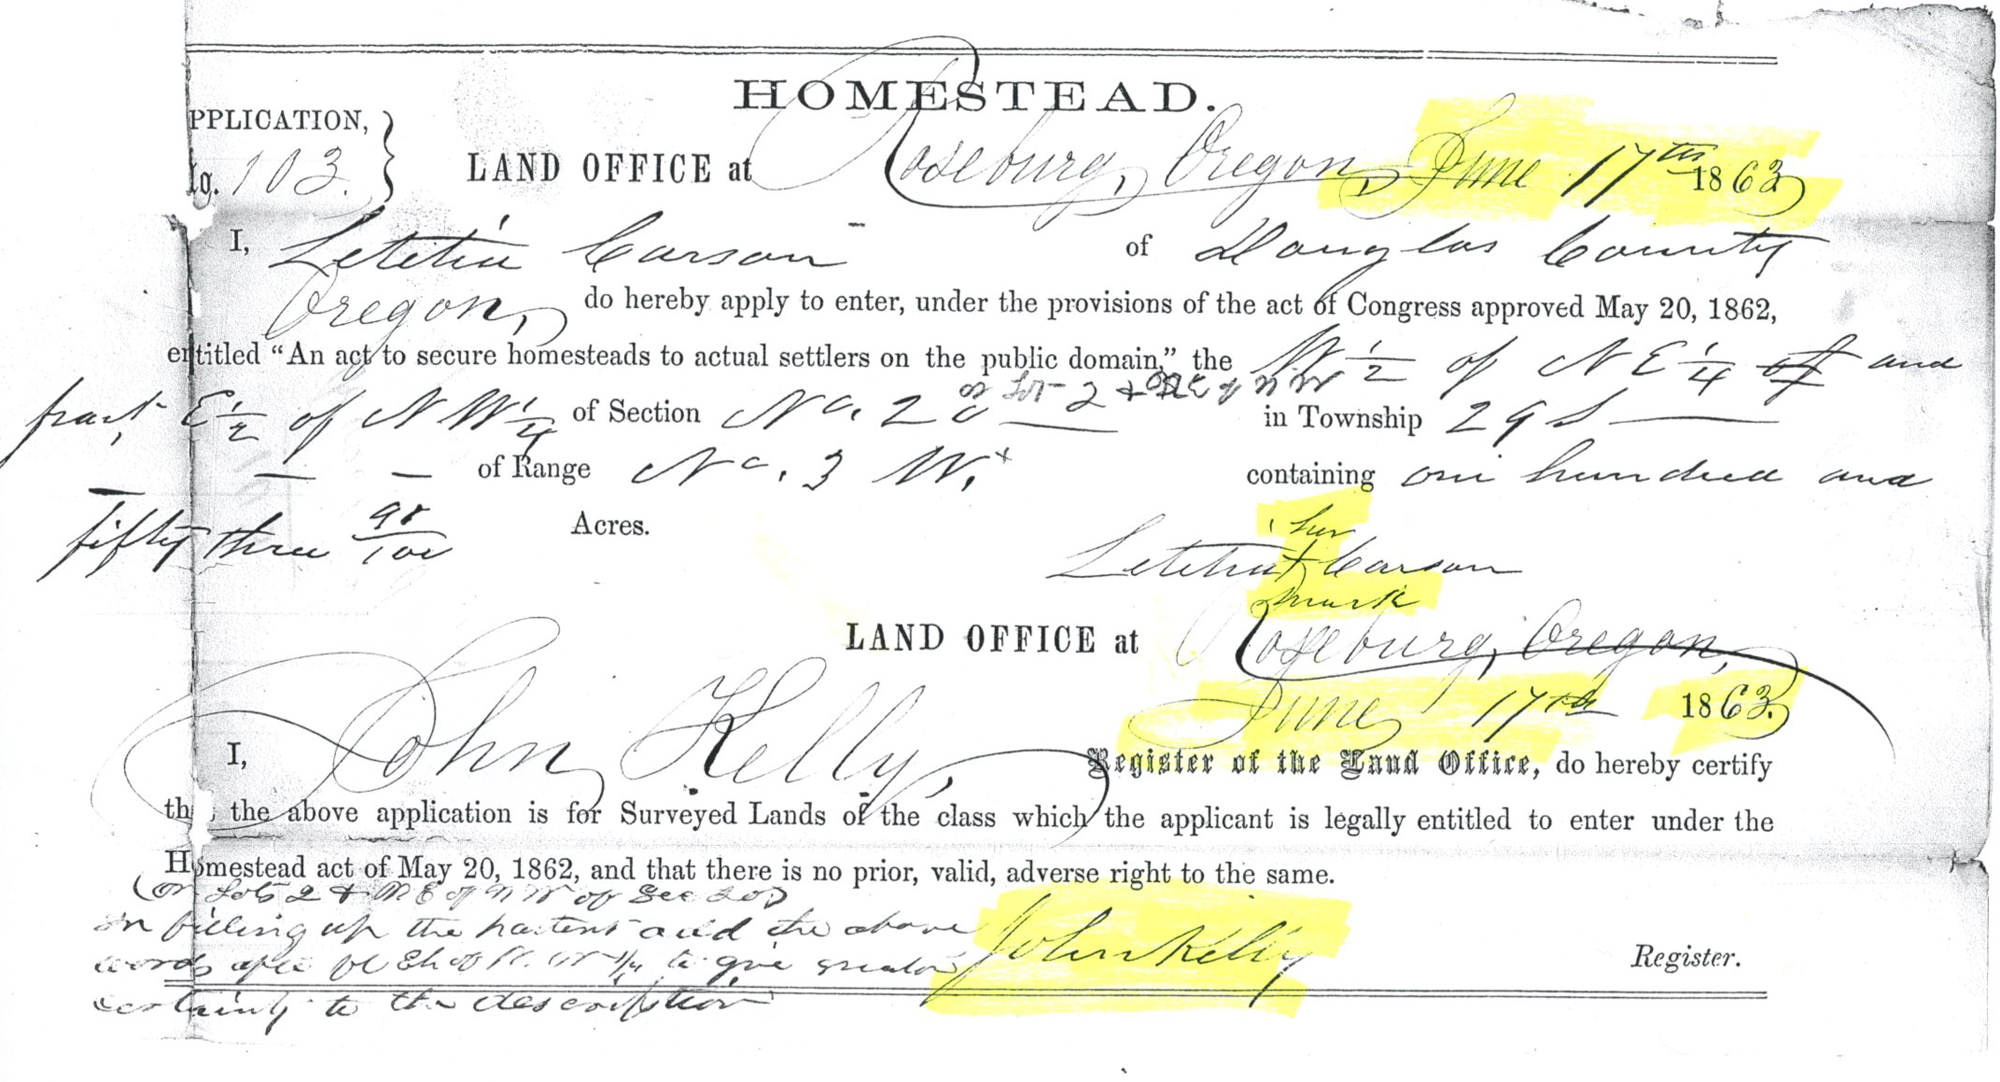 HOMESTEAD.
PPLICATION,
No. 103.
LAND OFFICE at Roseburg, Oregon, June 17th 1863
I, Letitia Carson of Douglas County
Oregon, do hereby apply to enter, under the provisions of the act of Congress approved May 20, 1862,
entitled “An act to secure homesteads to actual settlers on the public domain,” the W 1/2 of NE 1/4 of and
or Lot 2 & NE of NW
fract. E 1/2 of NW 1/4 of Section No. 20 in Township 29 S
of Range No. 3 W. containing one hundred and
fifty three 98/100 Acres.
her
Letitia X Carson
mark
LAND OFFICE at Roseburg, Oregon,
June 17th 1863.
I, John Kelly, Register of the Land Office, do hereby certify
tha the above application is for Surveyed Lands of the class which the applicant is legally entitled to enter under the
Homestead act of May 20, 1862, and that there is no prior, valid, adverse right to the same.
(or Lots 2 & NE of NW of Sec 20)
in filling up the add the above
words to give greater
certainty to the description
John Kelly
Register.